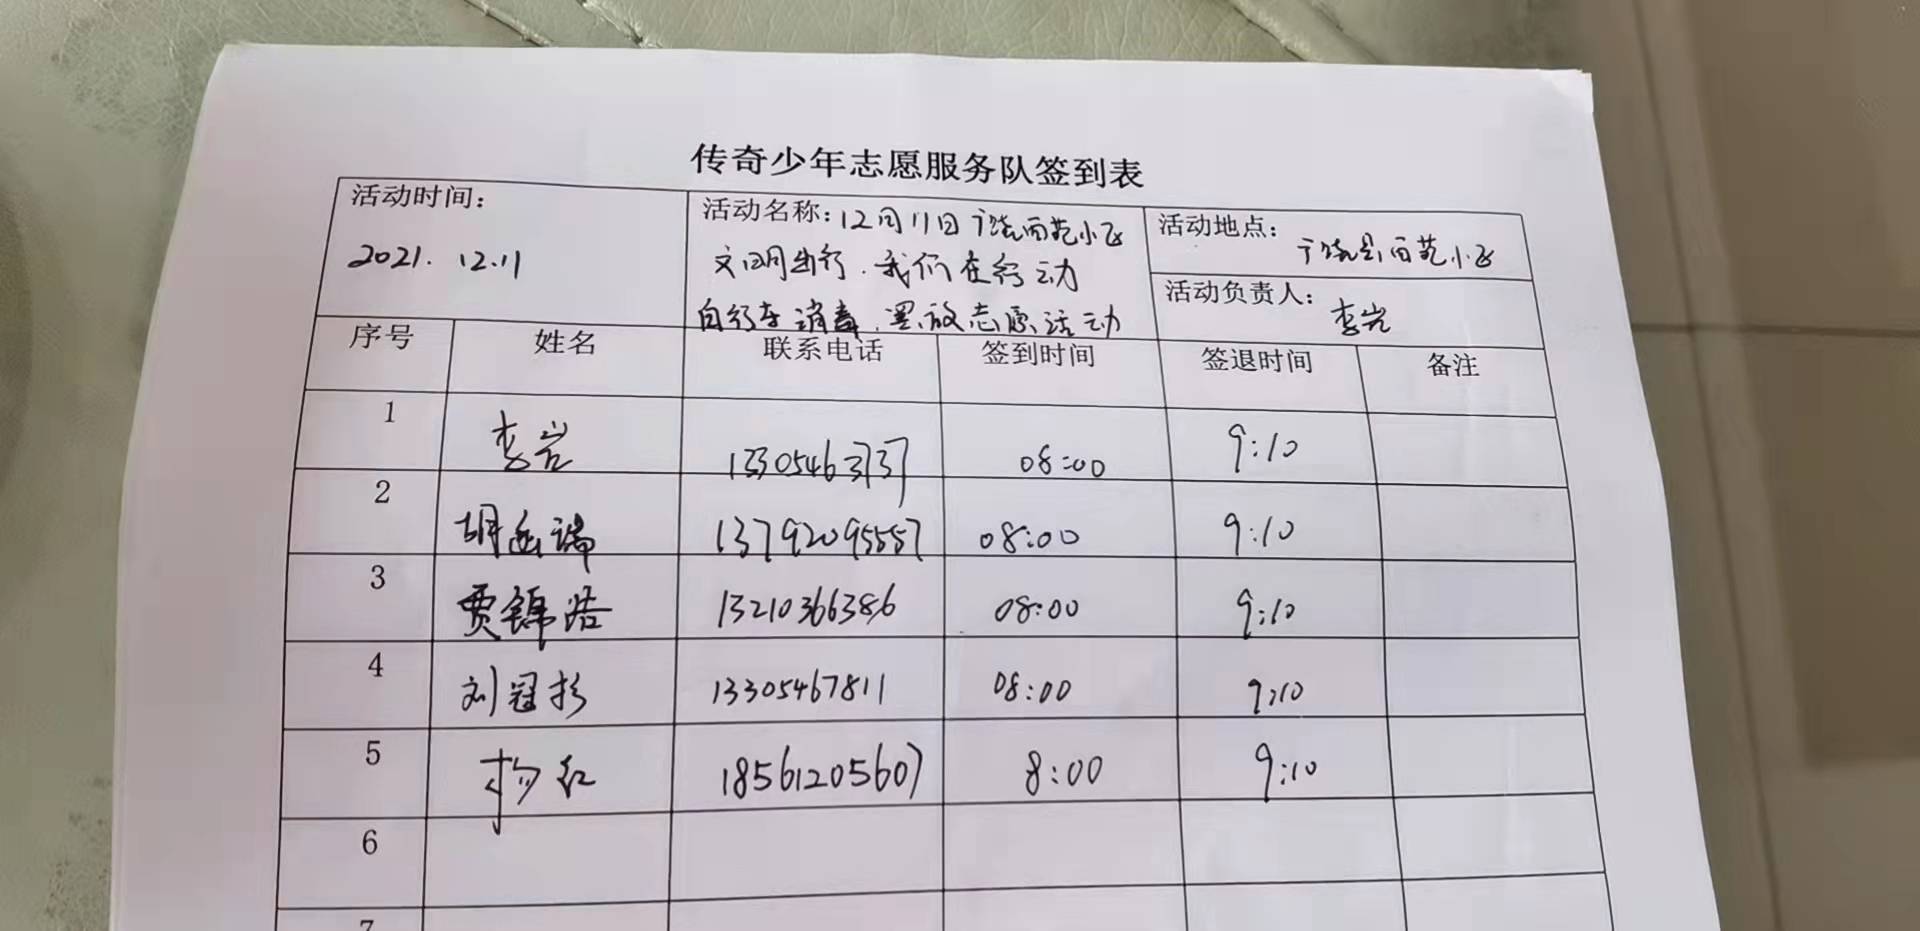 传奇少年志愿服务队签到表
活动时间：
2021. 12.11
活动名称：12月11日广饶西苑小区
文明出行．我们在行动
自行车消毒．摆放志愿活动
活动地点：广饶县西苑小区
活动负责人：李岩
序号 姓名 联系电话 签到时间 签退时间 备注
1 李岩 13305463737 08:00 9:10
2 胡函瑞 13792095557 08:00 9:10
3 贾锦浩 13210366386 08:00 9:10
4 刘冠杉 13305467811 08:00 9:10
5 杨红 18561205607 8:00 9:10
6
7